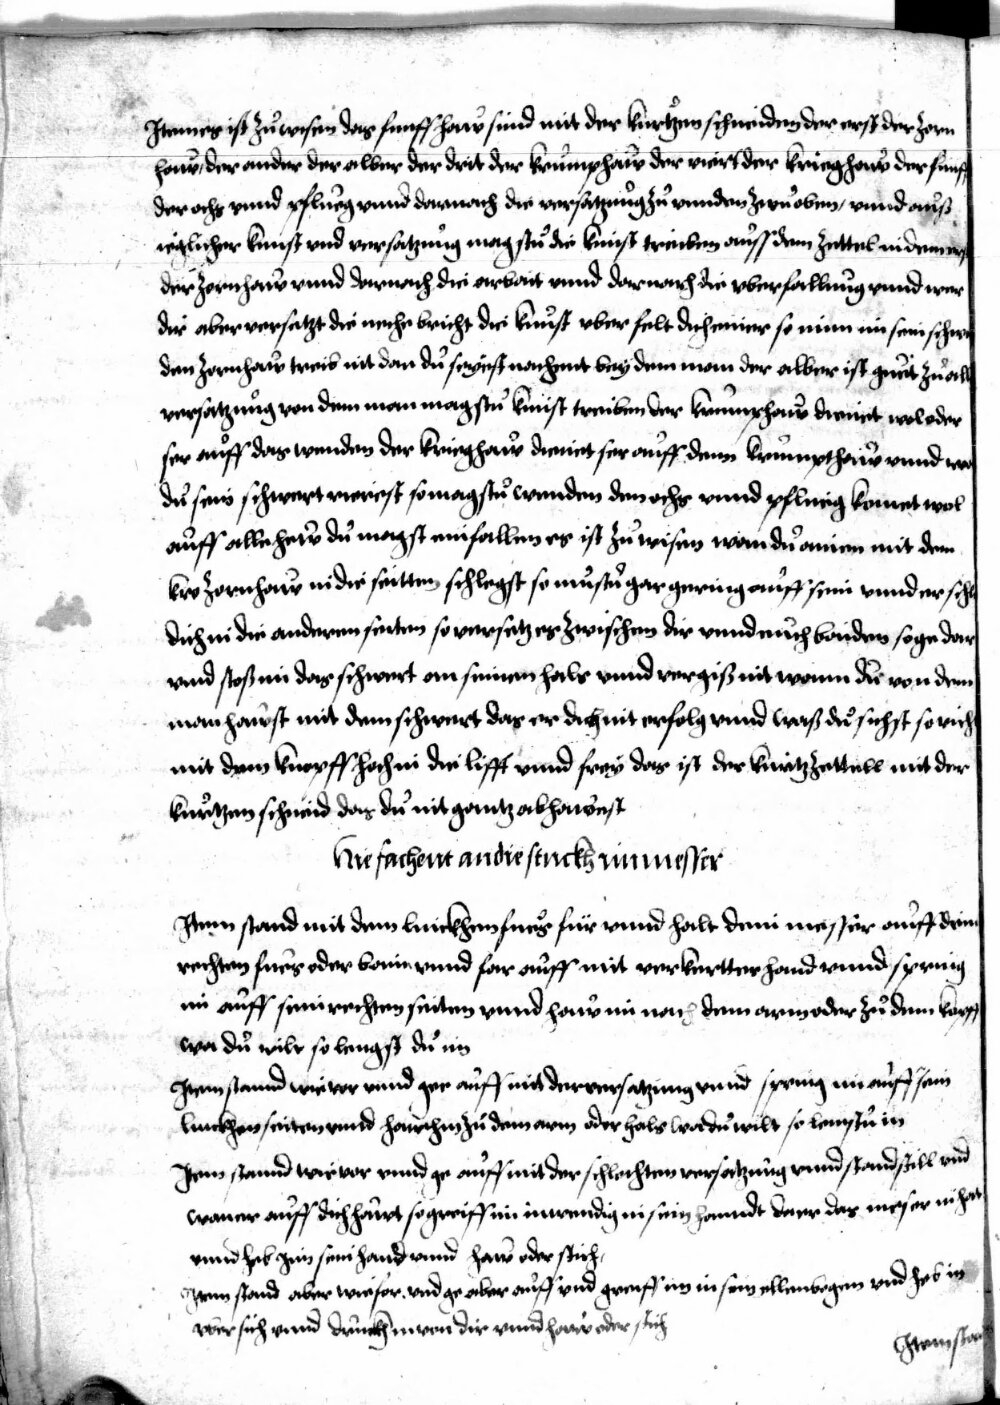 Item es ist zu wisen das funff haw sind mit der kurtzen schneiden der erst der zorn
haw, der ander der alber der drit der krumphaw der viert der krieghaw der funff
der ochs vnnd pflueg vnnd darnach die versatzung zu vnnden zwu oben, vnnd auß
ieglicher kunst vnd versatzung magstu die kunst treiben auff dem zettel in dem erst
der zornhaw vnnd darnach die arbait vnnd darnach die vberfallung vnnd wer
dir aber versatzt die neche bricht die kunst vber felt dich einer so nim im sein schw
den zornhaw treib nit dan du seyest nachent bey dem man der alber ist guet zu all
versatzung von dem man magstu kunst treiben der krumphaw dienet wol oder
ser auff das wenden der krieghaw dienet ser auff denn krumpthaw vnnd wo
du sein schwert rierest so magstu wenden den ochs vnnd pflueg komet wol
auff alle hew du magst einfallen es ist zu wisen wan du ainem mit dem
zornhaw in die seitten schlegst so mustu gar gering auff sein vnnd er schl
dich in die anderen seiten so versatz es zwischen dir vnnd euch baiden so ge dar
vnnd stoß im das schwert an seinem hals vnnd vergiß nit wann du von dem
man hawst mit dem schwert das er dich nit erfolg vnnd waß du sichst so rich
mit dem knopff hoch in die lifft vnnd frey das ist der kuritz zettell mit der
kurtzen schneid das du nit gantz abhawest
Hie fachent an die stuckh im messer
Item stand mit dem linckhen fues für vnnd halt dein messer auff dein
rechten fues oder bain vnnd far auff mit verkertter hand vnnd spring
im auff sein rechten seiten vnnd haw im nach dem arm oder zu dem kopff
wa du wilt so lengst du im
Item stannd wie vor vnnd gee auff mit der versatzung vnnd spring im auff sein
linckhen seiten vnnd haw ihm zu dem arm oder hals wa du wilt so lemstu in
Item stannd wie vor vnnd ge auff mit der schlechten versatzung vnnd stand still vnd
wan er auff dich hawt so greiff im inwendig in sein hanndt da er das meser in hat
vnnd heb im sein hand vnnd haw oder stich,
Item stand aber wie for vnd ge aber auff vnd greiff im in sein ellenbogen vnd heb in
vber sich vnnd druckh in von dir vnnd haw oder stich
Item stan